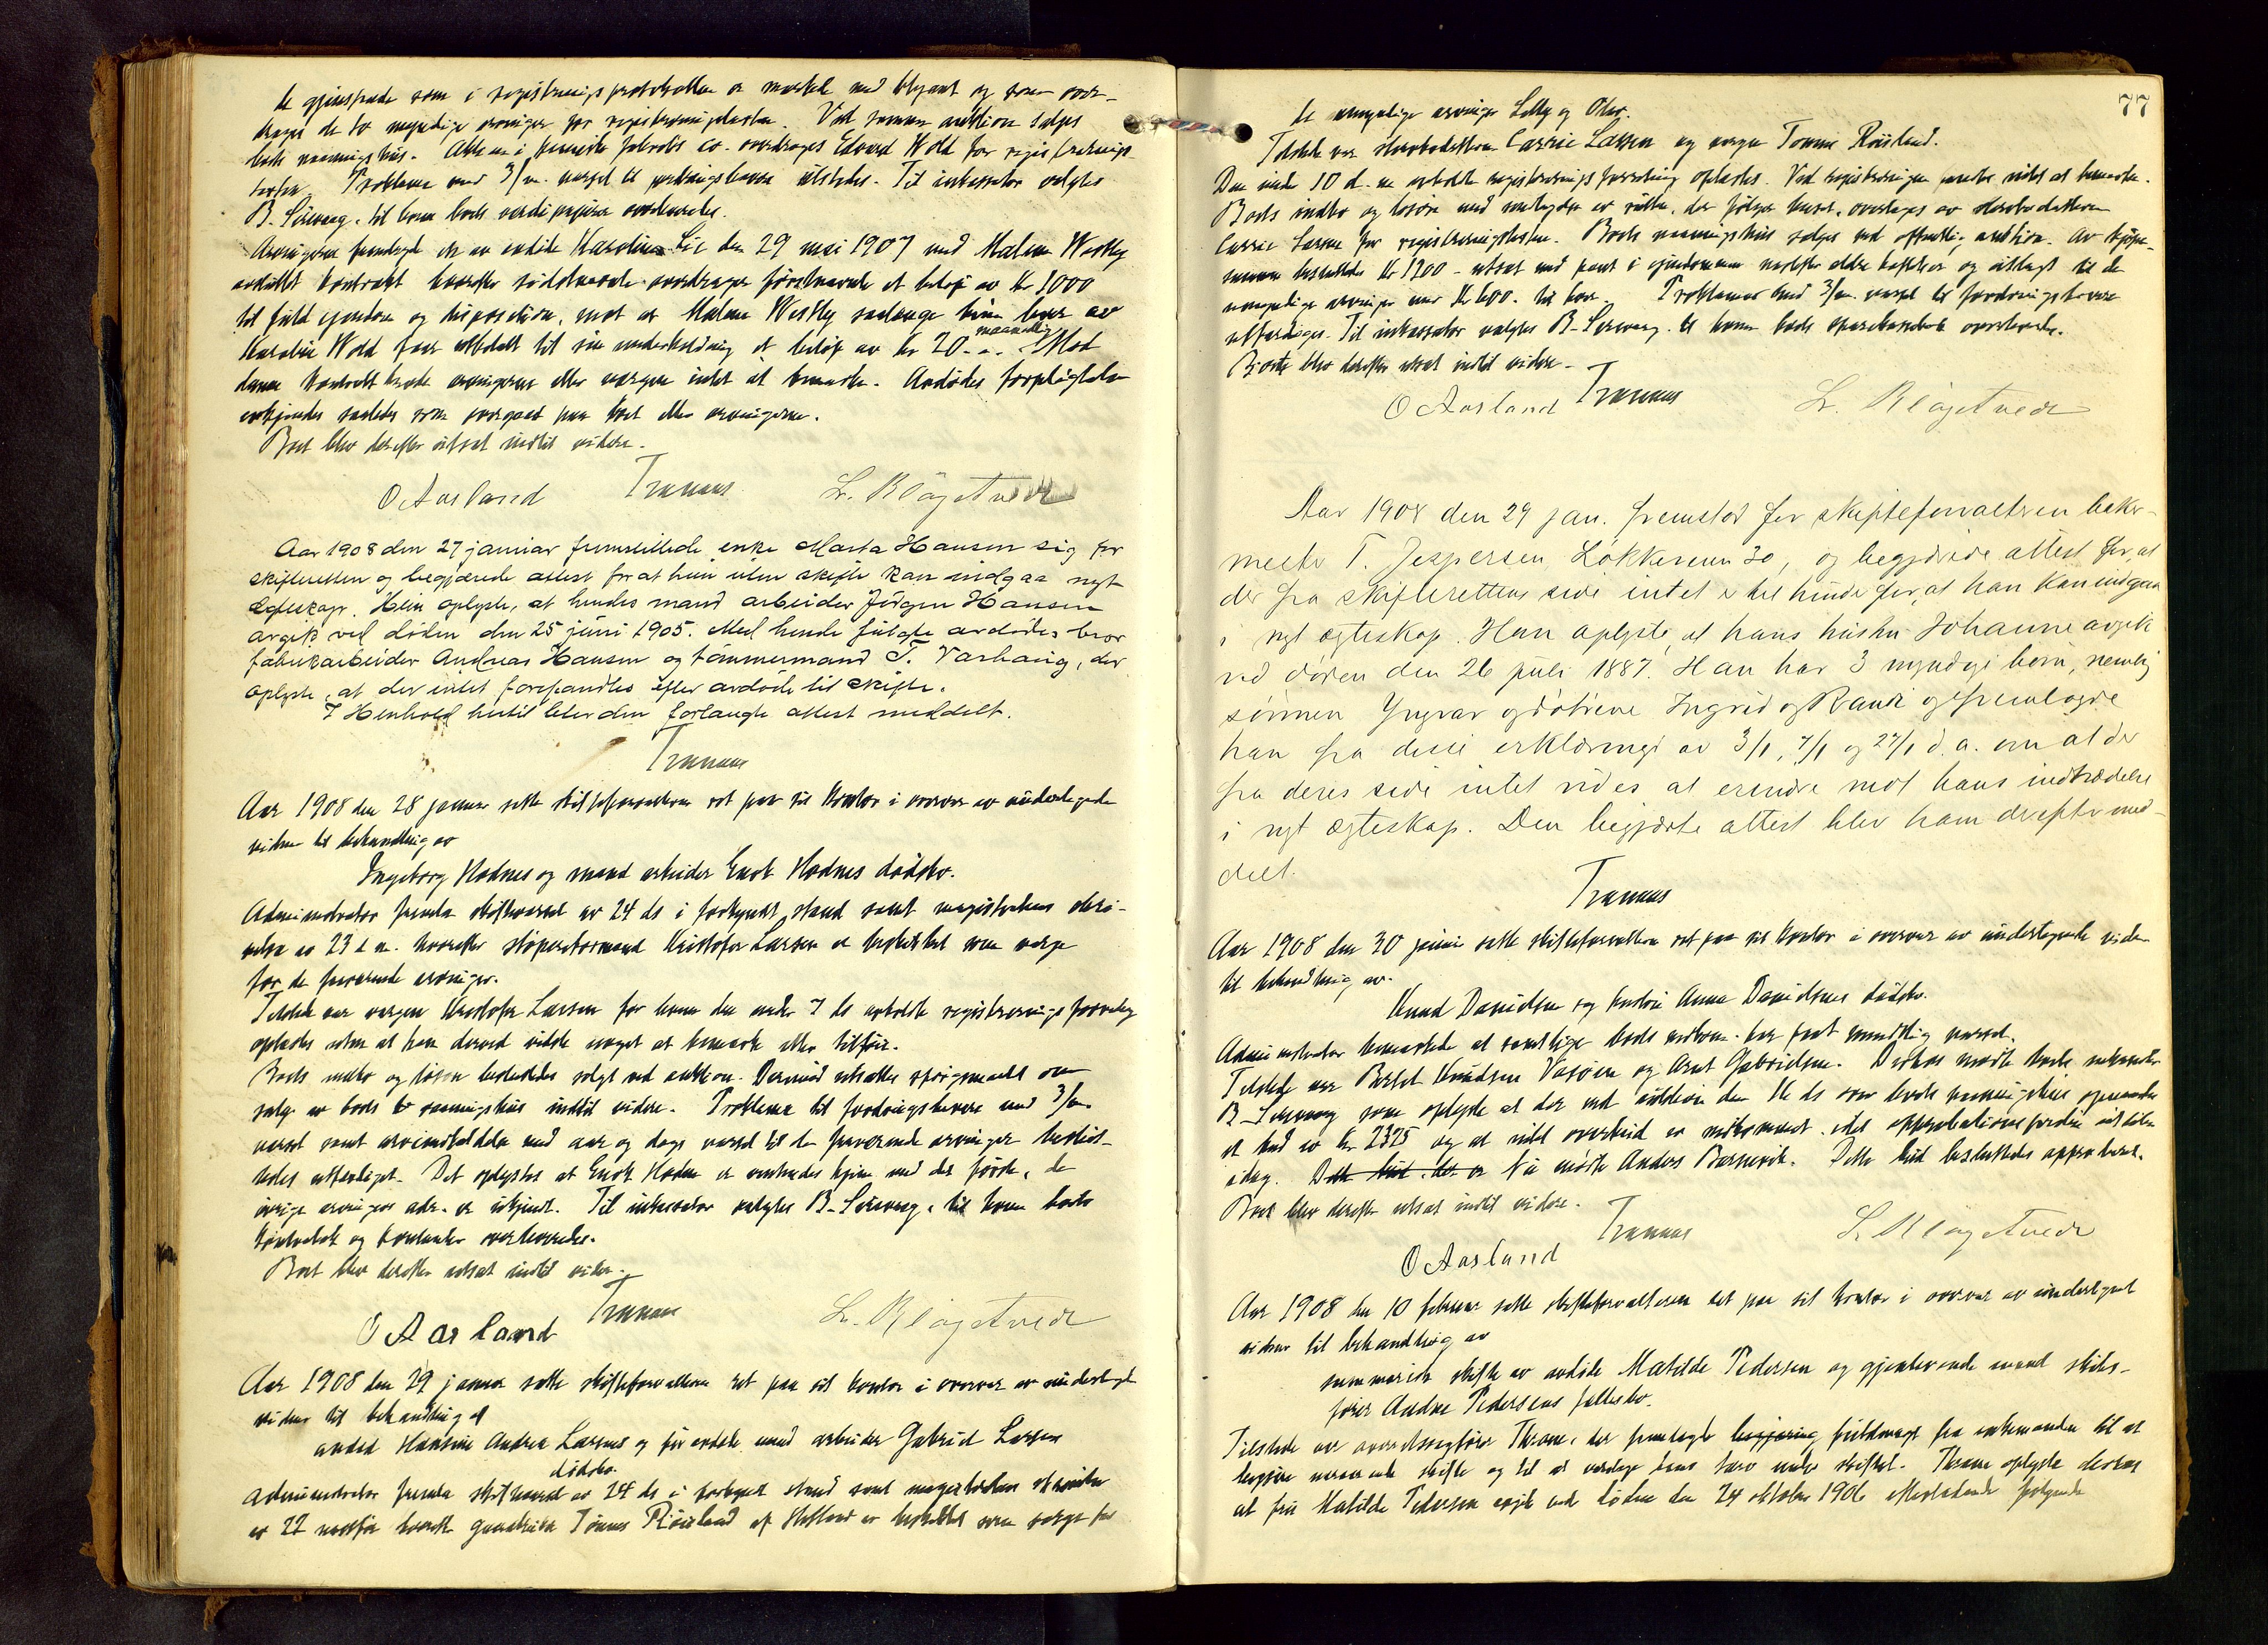 de gjenstande som i registreringsprotokollen er merket med blyant og som over-
drages de to myndige arvinger for registreringstaxten. Ved samme auktion sælges
boets vaaningshus. Aktiene i hermetik fabrobs co. overdrages Edvard Wold for registrerings
taxten. Proklama med 3/m. varsel til fordringshavere utstedes. Til inkassator valgtes
B. Sirevaag, til hvem boets verdipapirer overleveredes.
Arvingerne fremlagde en av avdøde Karoline Lie den 29 mai 1907 med Malene Westby
avsluttet kontrakt hvorefter sidstnævnte overdrager førstnævnte et beløp av kr 1000
til fuld eiendom og disposition, mot at Malene Westby saalænge hun lever av
Karoline Wold faar utbetalt til sin underholdning et beløp av kr 20.- maanedlig. Mod
denne kontrakt havde arvingerne eller værgen intet at bemerke. Avdødes forpligtelse
erkjendes saaledes som overgaaet paa boet eller arvingerne.
Boet blev derefter utsat indtil videre.
O Aarsland Tranaas L. Kløgetvedt
Aar 1908 den 27 januar fremstillede enke Marta Hansen sig for
skifteretten og begjærede attest for at hun uten skifte kan indgaa nyt
egteskap. Hun oplyste, at hendes mand arbeider Jørgen Hansen
avgik ved døden den 25 juni 1905. Med hende fulgte avdødes bror
fabrikarbeider Andreas Hansen og tømmermand T. Varhaug, der
oplyste, at der intet forefandtes efter avdøde til skifte.
I Henhold hertil blev den forlangte attest meddelt.
Tranaas
Aar 1908 den 28 januar satte skifteforvalteren ret paa sit kontor i overvær av undertegnede
vidner til behandling av
Ingeborg Hodnes og mand arbeider Enok Hodnes dødsbo.
Administrator fremla skiftevarsel av 24 ds i forkyndt stand samt magistratens skri-
velse av 23 d.m. hvorefter støperiformand Kristofer Larsen er beskikket som værge
for de fraværende arvinger.
Tilstede var værgen Kristofer Larsen for hvem den under 7 ds avholdte registreringsforretning
oplæstes uten at han derved vidste noget at bemerke eller tilføie.
Boets indbo og løsøre besluttedes solgt ved auktion. Derimod utsattes spørgsmaalet om
salg av boets vaaningshus indtil videre. Proklama til fordringshavere med 3/m.
varsel samt arveindkaldelse med aar og dags varsel til de fraværende arvinger beslut-
tedes utfærdiget. Det oplystes at Enok Hodne er ventendes hjem med det første, de
øvrige arvingers adr. er ukjendt. Til inkassator valgtes B. Sirevaag, til hvem boets
kontrabok og kontanter overleveredes.
Boet blev derefter utsat indtil videre.
O Aarsland Tranaas L. Kløgetvedt
Aar 1908 den 29 januar satte skifteforvalteren ret paa sit kontor i overvær av undertegnede
vidner til behandling af
enked Hansine Andrea Larsens og før avdøde mand arbeider Gabriel Larsen
dødsbo.
Administrator fremla skiftevarsel av 24 ds i forkyndt stand samt magistratens skrivelse
av 22 næstfør hvorefter gaardbruker Tønnes Røisland af Hetland er beskikket som værge for
77
de umyndige arvinger Selly og Oskar.
Tilstede var stervbodatteren Carrie Larsen og værgen Tønnes Røisland.
Den under 10 d.m. avholdte registreringsforretning oplæstes. Ved registreringen fandtes intet at bemerke.
Boets indbo og løsøre med undtagelse av rullen, der følger huset, overtages av stervbodatteren
Carrie Larsen for registreringstaxten. Boets vaaningshus sælges ved offentlig auktion. Av kjøpe-
summen besluttedes Kr 1200 utsat med pant i eiendommen næstefter ældre heftelser og utlagt til de
umyndige arvinger med Kr 600. til hver. Proklama med 3/m. varsel til fordringshavere
utfærdiges. Til inkassator valgtes B. Sirevaag, til hvem boets sparebankbok overleveredes.
Boet blev derefter utsat indtil videre.
O Aarsland Tranaas L. Kløgetvedt
Aar 1908 den 29 jan. fremstod for skifteforvalteren baker-
mester T. Jespersen, Løkkeveien 30, og begjærede attest for, at
der fra skifterettens side intet er til hinder for, at han kan indgaa
i nyt ægteskap. Han oplyste, at hans hustru Johanne avgik
ved døden den 26 juli 1887. Han har 3 myndige børn, nemlig
sønnen Yngvar og døtrene Ingrid og Randi og fremlagde
han fra disse erklæringer av 3/1, 7/1 og 27/1 d.a. om at der
fra deres side intet vides at erindre mot hans indtrædelse
i nyt ægteskap. Den begjærte attest blev ham derefter med-
delt.
Tranaas
Aar 1908 den 30 januar satte skifteforvalteren ret paa sit kontor i overvær av undertegnede vidner
til behandling av
Knud Davidsen og hustru Anna Davidsens dødsbo.
Administrator bemerkede at samtlige boets vedkom. har faat mundtlig varsel.
Tilstede var Bertel Knudsen Vasøen og Arnt Gabrielsen. Derhos mødte boets inkassator
B. Sirevaag som oplyste at der ved auktion den 16 ds over boets vaaningshus opnaaedes
et bud av kr. 2325 og at intet overbud er indkommet, idet approbationsfristen utløber
idag. Dette bud der er fra enke Anders Barnevik. Dette bud besluttedes approberet.
Boet blev derefter utsat indtil videre.
O Aarsland Tranaas L. Kløgetvedt
Aar 1908 den 10 februar satte skifteforvalteren ret paa sit kontor i overvær av undertegnede
vidner til behandling av
summarisk skifte av avdøde Matilde Pedersen og gjenlevende mand skibs-
fører Andreas Pedersens fællesbo.
Tilstede var overretssagfører Thrane, der fremlagde begjæring fuldmagt fra enkemanden til at
begjære nærværende skifte og til at varetage hans tarv under skiftet. Thrane oplyste derhos
at fru Matilde Pedersen avgik ved døden den 24 oktober 1906 efterladende følgende